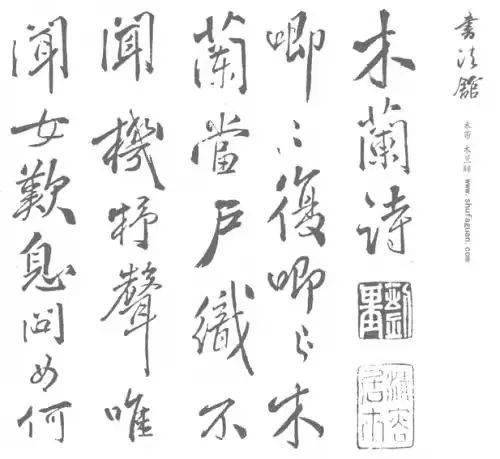 書法館
米芾 木兰辞 www.shufaguan.com
木蘭詩
唧〻復唧〻木
蘭當戶織不
聞機杼聲唯
聞女歎息問女何